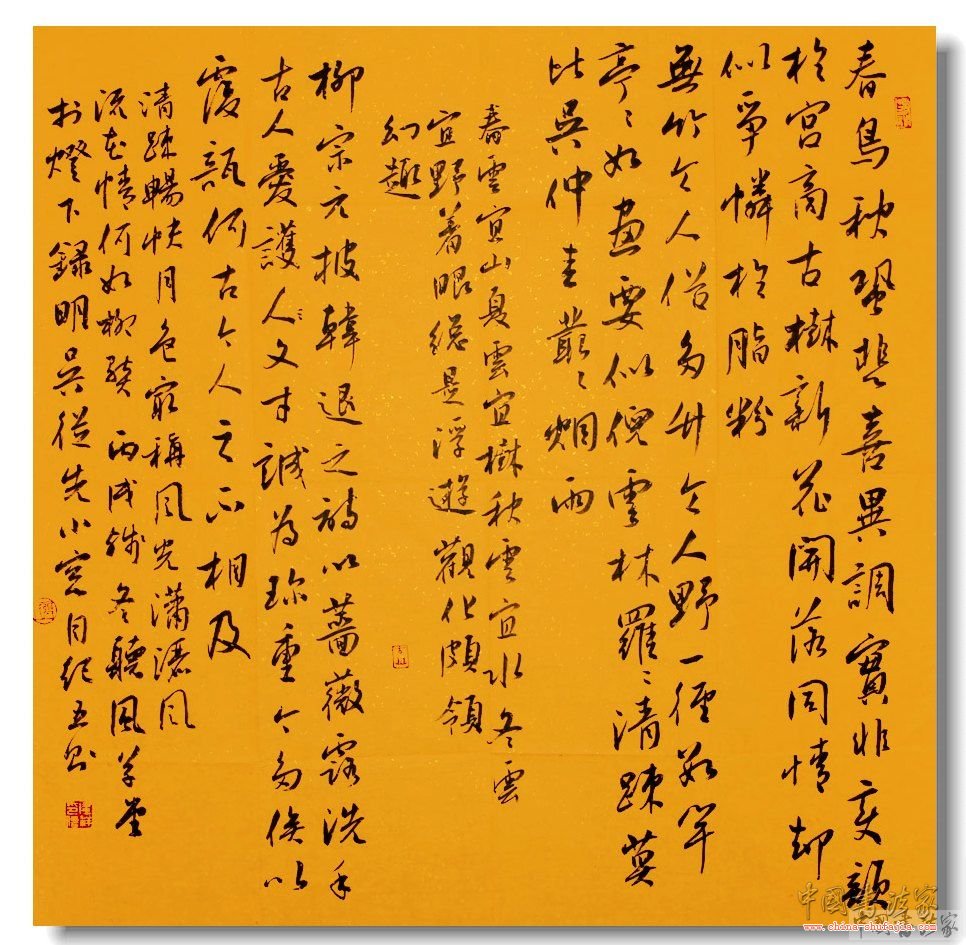 春鳥秋蛩悲喜異調實非變韻
於宮商古樹新花開落同情却
似爭憐於脂粉
無竹令人俗多竹令人野一徑數竿
亭々如畫要似倪雲林羅々清疎莫
比吳仲圭叢々烟雨
春雲宜山夏雲宜樹秋雲宜水冬雲
宜野着眼總是浮遊觀化頗領
幻趣
柳宗元披韓退之詩以薔薇露洗手
古人愛護人々文才誠為珍重今多俟以
覆瓿何古今人之不相及
清疎暢快月色最稱風光瀟灑風
流花情何如柳態 丙戌殘冬聽風草堂
於燈下錄明吳從先小窗自紀五則
中國書法家
www.china-shufajia.com